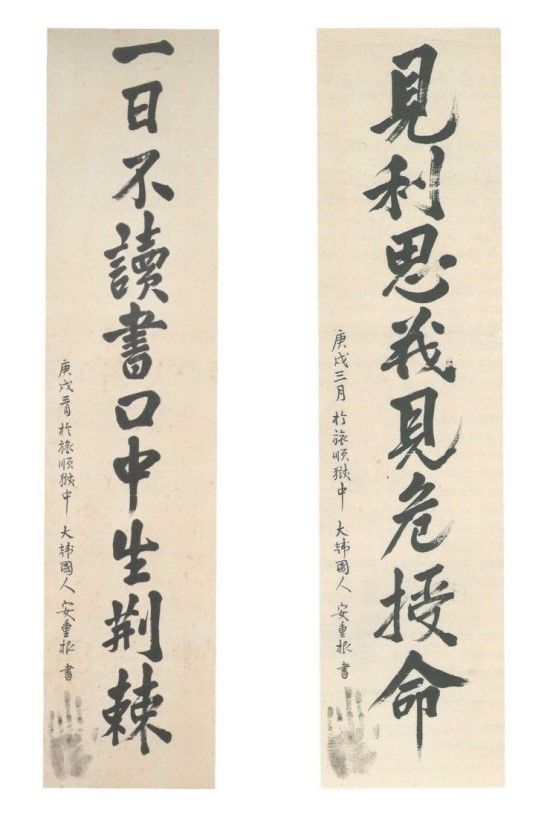 見利思義見危授命
庚戌三月 於旅順獄中 大韓國人 安重根 書
一日不讀書口中生荊棘
庚戌三月 於旅順獄中 大韓國人 安重根 書